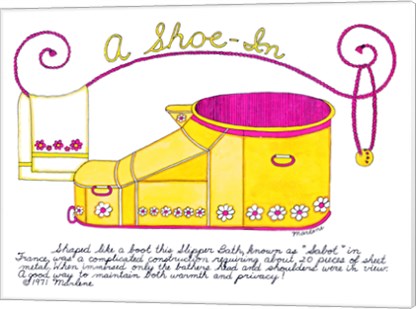 A Shoe-In
Marlene
Shaped like a boot this Slipper Bath, known as "Sabot" in
France, was a complicated construction requiring about 20 pieces of sheet
metal. When immersed only the bathers head and shoulders were in view.
A good way to maintain both warmth and privacy!
©1971 Marlene